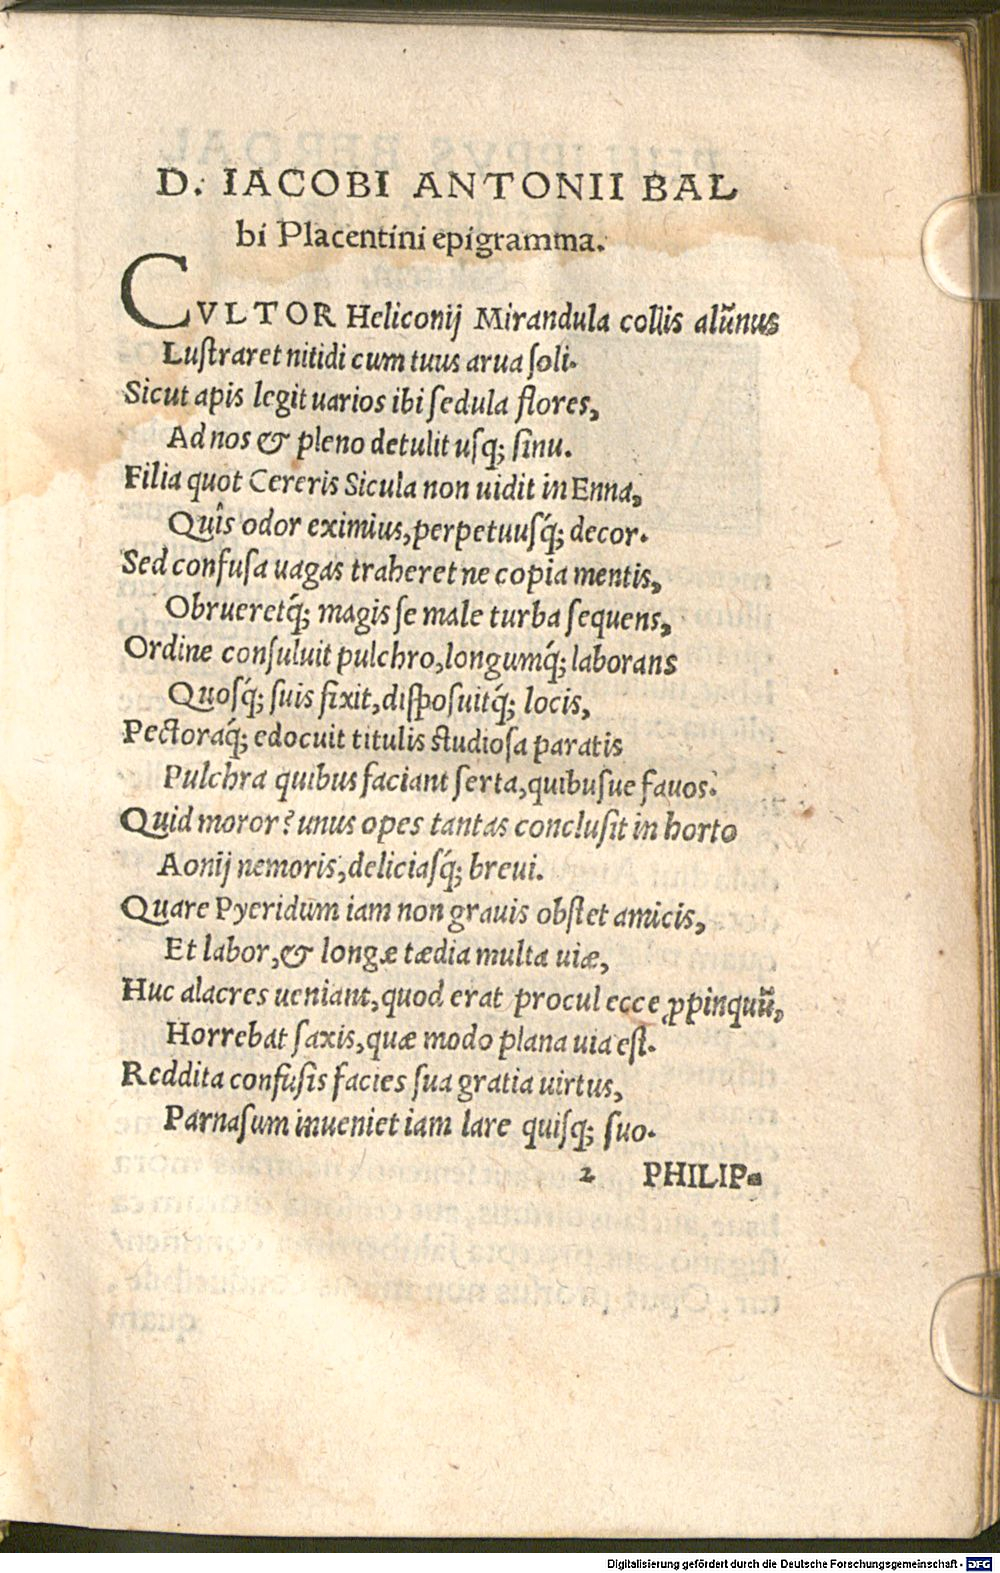 D. IACOBI ANTONII BAL
bi Placentini epigramma.
CVLTOR Heliconij Mirandula collis alũnus
Luſtraret nitidi cum tuus arua ſoli.
Sicut apis legit uarios ibi ſedula flores,
Ad nos & pleno detulit uſq; ſinu.
Filia quot Cereris Sicula non uidit in Enna,
Quîs odor eximius, perpetuuſq́; decor.
Sed confuſa uagas traheret ne copia mentis,
Obrueretq́; magis ſe male turba ſequens,
Ordine conſuluit pulchro, longumq́; laborans
Quoſq́; ſuis fixit, diſpoſuitq́; locis,
Pectoraq́; edocuit titulis ſtudioſa paratis
Pulchra quibus faciant ſerta, quibuſue fauos.
Quid moror? unus opes tantas concluſit in horto
Aonij nemoris, deliciaſq́; breui.
Quare Pyeridum iam non grauis obſtet amicis,
Et labor, & longæ tædia multa uiæ,
Huc alacres ueniant, quod erat procul ecce ꝓpinquũ,
Horrebat ſaxis, quæ modo plana uia eſt.
Reddita confuſis facies ſua gratia uirtus,
Parnaſum inueniet iam lare quiſq; ſuo.
2 PHILIP-
Digitalisierung gefördert durch die Deutsche Forschungsgemeinschaft - DFG